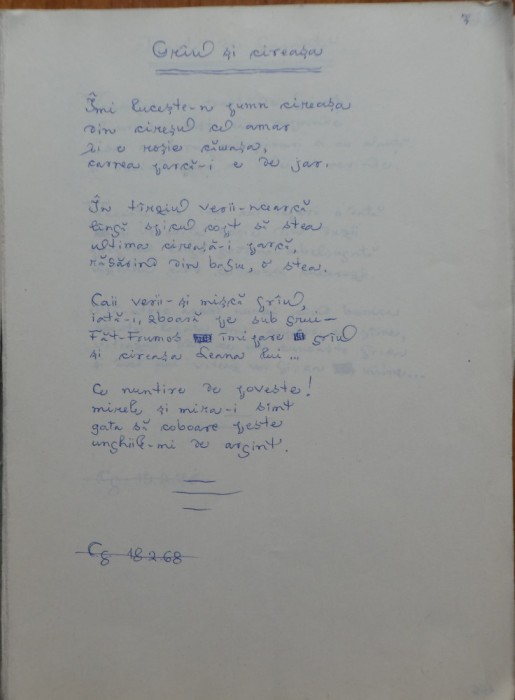 Grîul și cireașa
Îmi lucește-n pumn cireașa
din cireșul cel amar
și e roșie cămașa,
carnea parcă-i e de jar.
În tîrziul verii-ncearcă
lîngă spicul copt să stea
ultima cireașă-i parcă,
răsărind din basm, o stea.
Caii verii-și mișcă grîul,
iată-i, zboară pe sub grui—
Făt-Frumos îmi pare grîul
și cireașa Ileana lui ...
Ce nuntire de poveste!
mirele și mirea-i sînt
gata să coboare peste
unghiile-mi de argint.
Cg 18 2 68